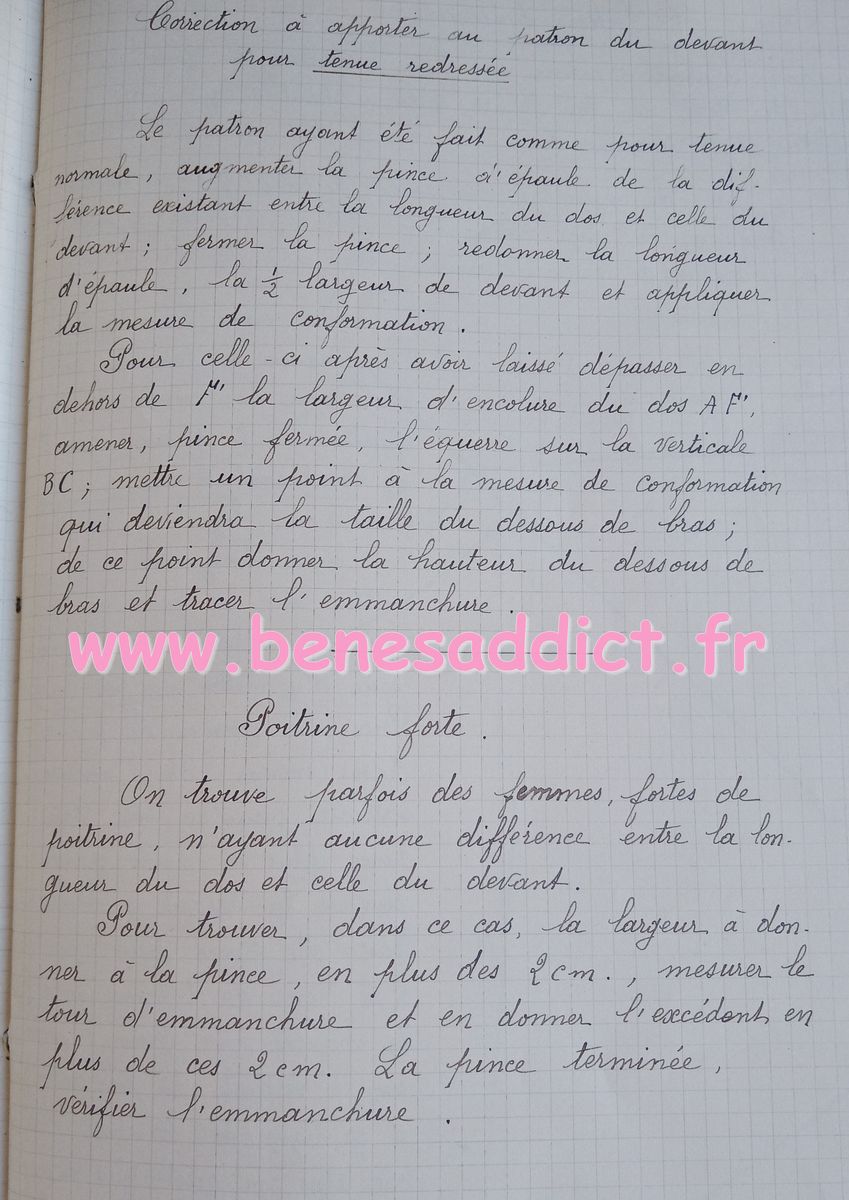 Correction à apporter au patron du devant
pour tenue redressée
Le patron ayant été fait comme pour tenue
normale, augmenter la pince d'épaule de la dif-
férence existant entre la longueur du dos et celle du
devant ; fermer la pince ; redonner la longueur
d'épaule, la ½ largeur de devant et appliquer
la mesure de conformation.
Pour celle-ci après avoir laissé dépasser en
dehors de F' la largeur d'encolure du dos A F',
amener, pince fermée, l'équerre sur la verticale
BC ; mettre un point à la mesure de conformation
qui deviendra la taille du dessous de bras ;
de ce point donner la hauteur du dessous de
bras et tracer l'emmanchure.
www.benesaddict.fr
Poitrine forte.
On trouve parfois des femmes, fortes de
poitrine, n'ayant aucune différence entre la lon-
gueur du dos et celle du devant.
Pour trouver, dans ce cas, la largeur à don-
ner à la pince, en plus des 2 cm., mesurer le
tour d'emmanchure et en donner l'excédent en
plus de ces 2 cm. La pince terminée,
vérifier l'emmanchure.